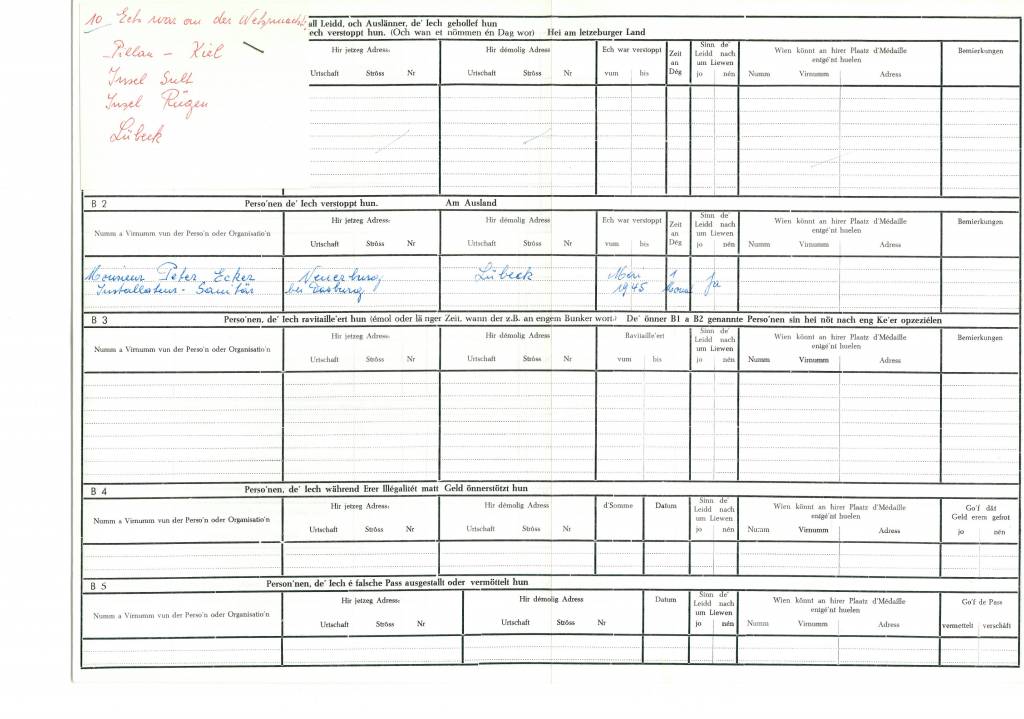 10 Ech war an der Wehrmacht:
Pillau - Kiel
Insel Sylt
Insel Rügen
Lübeck
all Leidd, och Auslänner, de' Iech gehollef hun
ech verstoppt hun. (Och wan et nömmen én Dag wor) Hei am letzeburger Land
Hir jetzeg Adress: Hir démolig Adress: Ech war verstoppt Zeit an Dég Sinn de' Leidd nach um Liewen Wien könnt an hirer Plaatz d'Médaille entgé'nt huelen Bemierkungen
Urtschaft Ströss Nr Urtschaft Ströss Nr vum bis jo nén Numm Virnumm Adress
B 2 Perso'nen de' Iech verstoppt hun. Am Ausland
Numm a Virnumm vun der Perso'n oder Organisatio'n Hir jetzeg Adress: Hir démolig Adress: Ech war verstoppt Zeit an Dég Sinn de' Leidd nach um Liewen Wien könnt an hirer Plaatz d'Médaille entgé'nt huelen Bemierkungen
Urtschaft Ströss Nr Urtschaft Ströss Nr vum bis jo nén Numm Virnumm Adress
Monsieur Peter Ecker Neuerburg Lübeck Mai 1 Ja
Installateur - Sanitär bei Dasburg 1945 Monat
B 3 Perso'nen, de' Iech ravitaille'ert hun (émol oder länger Zeit, wann der z.B. an engem Bunker wort) De' önner B1 a B2 genannte Perso'nen sin hei nöt nach eng Ke'er opzeziélen
Numm a Virnumm vun der Perso'n oder Organisatio'n Hir jetzeg Adress: Hir démolig Adress Ravitaille'ert Sinn de' Leidd nach um Liewen Wien könnt an hirer Plaatz d'Médaille entgé'nt huelen Bemierkungen
Urtschaft Ströss Nr Urtschaft Ströss Nr vum bis jo nén Numm Virnumm Adress
B 4 Perso'nen, de' Iech während Erer Illégalitét matt Geld önnerstötzt hun
Numm a Virnumm vun der Perso'n oder Organisatio'n Hir jetzeg Adress: Hir démolig Adress d'Somme Datum Sinn de' Leidd nach um Liewen Wien könnt an hirer Plaatz d'Médaille entgé'nt huelen Go'f dât Geld erem gefrot
Urtschaft Ströss Nr Urtschaft Ströss Nr jo nén Numm Virnumm Adress jo nén
B 5 Person'nen, de' Iech é falsche Pass ausgestallt oder vermöttelt hun
Numm a Virnumm vun der Perso'n oder Organisatio'n Hir jetzeg Adress: Hir démolig Adress Datum Sinn de' Leidd nach um Liewen Wien könnt an hirer Plaatz d'Médaille entgé'nt huelen Go'f de Pass
Urtschaft Ströss Nr Urtschaft Ströss Nr jo nén Numm Virnumm Adress vermettelt verschâft